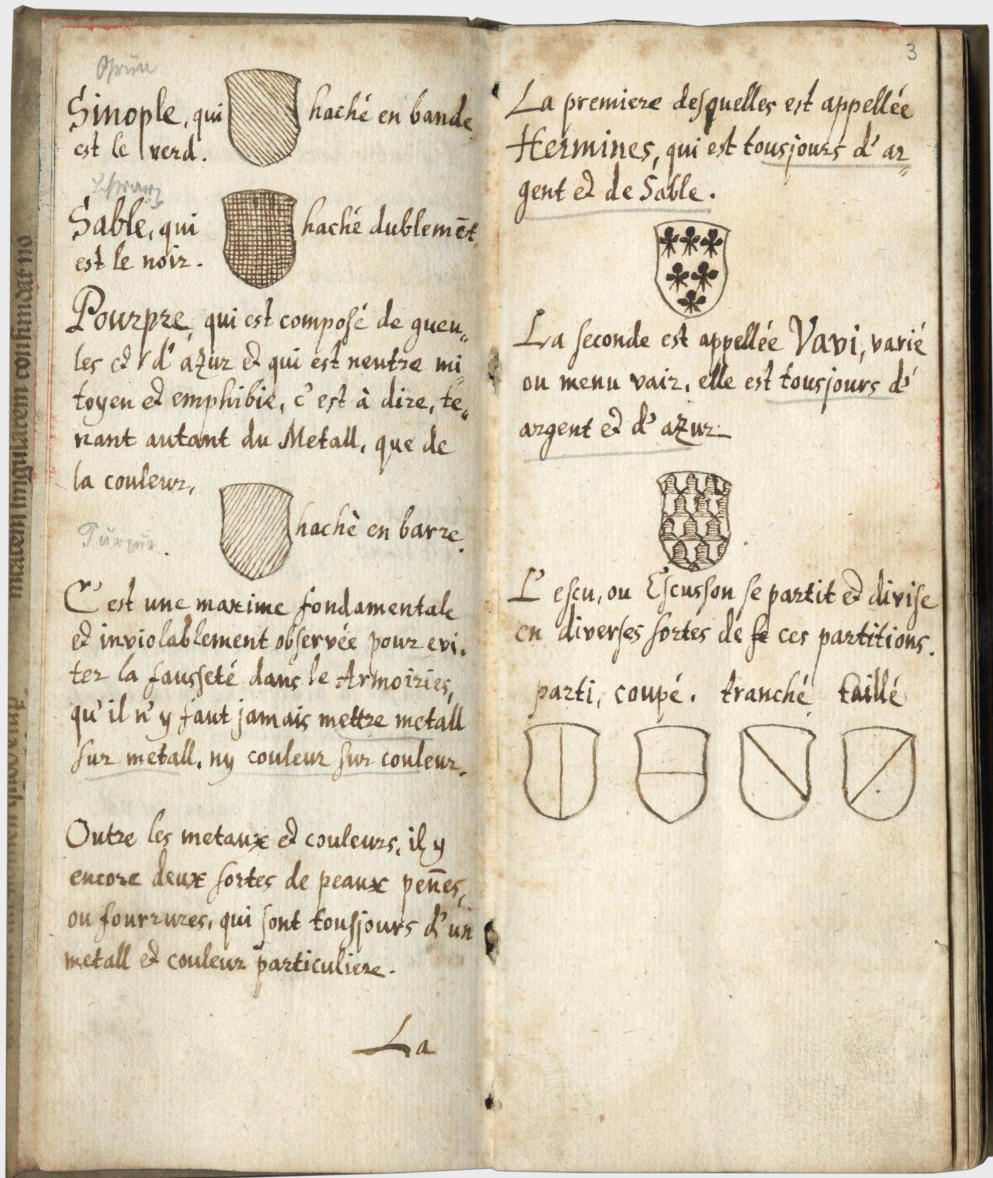 Grün
Sinople, qui haché en bande
est le verd.
Schwarz
Sable, qui haché dublemēt
est le noir.
Pourpre, qui est composé de gueu„
les et d' azur et qui est neutre mi„
toyen et emphibie, c' est à dire, te„
nant autant du Metall, que de
la couleur,
haché en barre.
Purpur.
C' est une maxime fondamentale
et inviolablement observée pour evi„
ter la fausseté dans le Armoiries,
qu' il n' y faut jamais mettre metall
sur metall, ny couleur sur couleur.
Outre les metaux et couleurs, il y
encore deux sortes de peaux pen̄es,
ou fourrures, qui sont tousjours d' un
metall et couleur particuliere.
La
3
La premiere desquelles est appellée
Hermines, qui est tousjours d' ar„
gent et de Sable.
La seconde est appellée Vavi, varié
ou menu vair, elle est tousjours d'
argent et d' azur.
L' escu, ou Escusson se partit et divise
en diverses sortes de ces partitions.
parti, coupé. tranché taillé